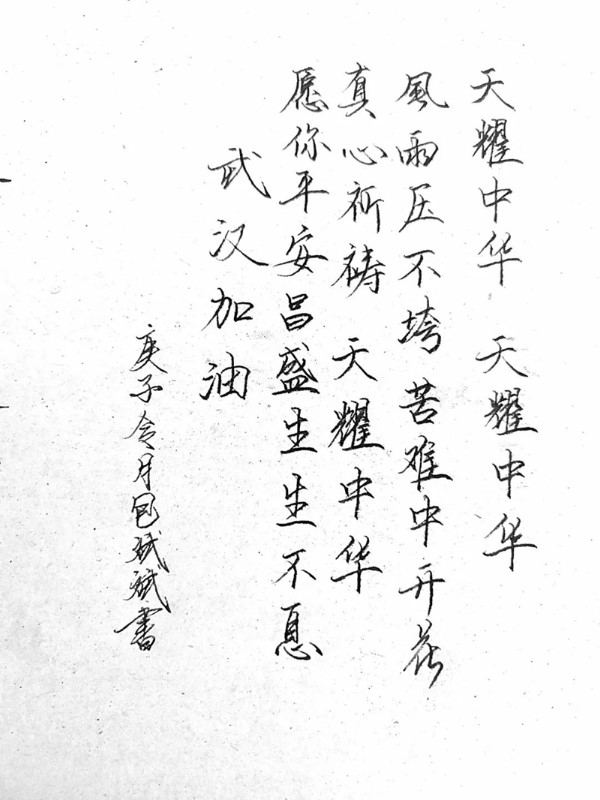 天耀中华 天耀中华
風雨压不垮苦难中开花
真心祈祷 天耀中华
愿你平安昌盛生生不息
武汉加油
庚子令月包斌斌書